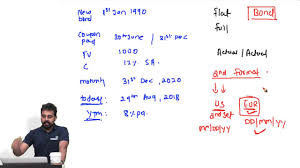 New bond 1st Jan 1990
Coupon paid 30th June / 31st Dec
FV 1000
C 12% SA.
maturity 31st Dec, 2020
today: 29th Aug, 2018
YTM: 8% pa.
Flat Bond
Full
Actual / Actual
2nd Format
US EUR
mm/dd/yy DD/mm/yy